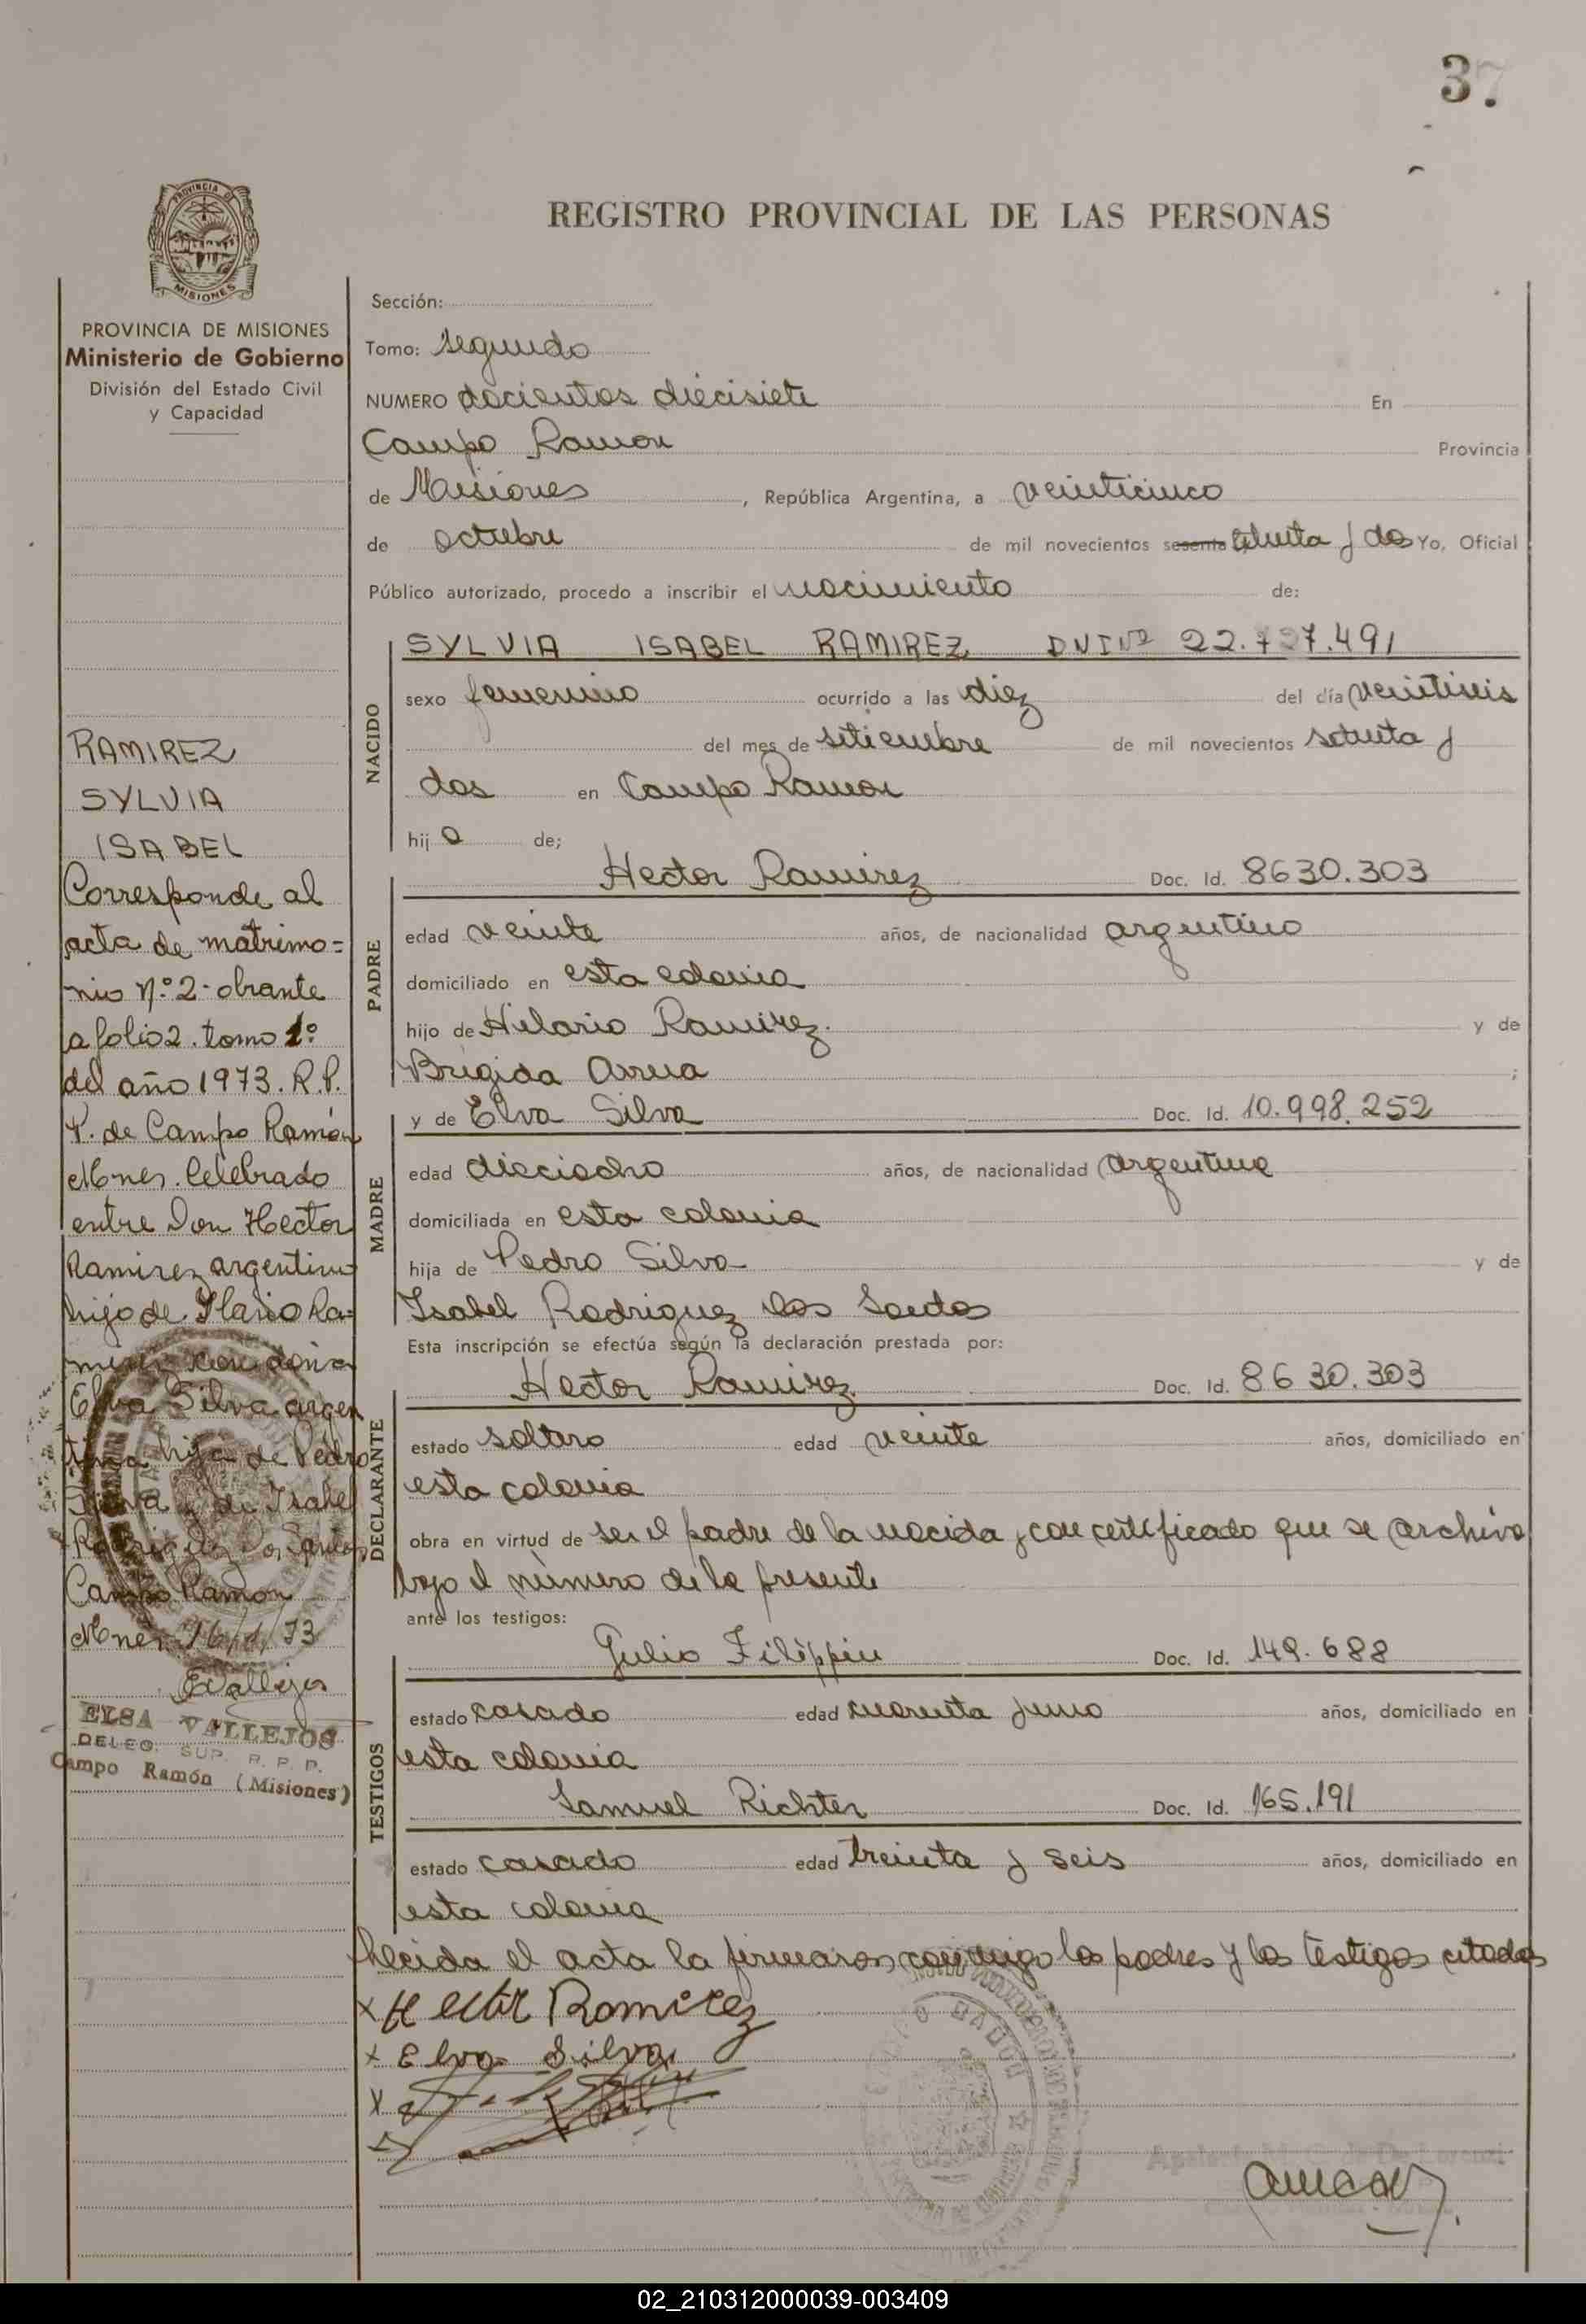 37
REGISTRO PROVINCIAL DE LAS PERSONAS
PROVINCIA DE
MISIONES
PROVINCIA DE MISIONES
Ministerio de Gobierno
División del Estado Civil
y Capacidad
RAMIREZ
SYLVIA
ISABEL
Corresponde al
acta de matrimo=
nio Nº 2 - obrante
a folio 2. tomo 1º
del año 1973. R.P.
P. de Campo Ramón
Mnes. Celebrado
entre Don Hector
Ramirez argentino
hijo de Ilario Ra=
mirez con doña
Elva Silva argen
tina hija de Pedro
Silva y de Isabel
Rodriguez Dos Santos
Campo Ramon
Mnes 16/1/73
EVallejos
ELSA VALLEJOS
DELEG. SUP. R. P. P.
Campo Ramón (Misiones)
Sección:
Tomo: segundo
NUMERO docientos diecisiete En
Campo Ramon Provincia
de Misiones, República Argentina, a veinticinco
de octubre de mil novecientos sesenta setenta y dos Yo, Oficial
Público autorizado, procedo a inscribir el nacimiento de:
NACIDO
SYLVIA ISABEL RAMIREZ DNI Nº 22.727.491
sexo femenino ocurrido a las diez del día veintiseis
del mes de setiembre de mil novecientos setenta y
dos en Campo Ramon
hija de;
PADRE
Hector Ramirez Doc. Id. 8630.303
edad veinte años, de nacionalidad argentino
domiciliado en esta colonia
hijo de Hilario Ramirez. y de
Brigida Arrua ;
MADRE
y de Elva Silva Doc. Id. 10.998.252
edad dieciocho años, de nacionalidad argentina
domiciliada en esta colonia
hija de Pedro Silva y de
Isabel Rodriguez dos Santos
Esta inscripción se efectúa según la declaración prestada por:
DECLARANTE
Hector Ramirez Doc. Id. 8630.303
estado soltero edad veinte años, domiciliado en
esta colonia
obra en virtud de ser el padre de la nacida y con certificado que se archiva
bajo el número de la presente
ante los testigos:
TESTIGOS
Julio Filippin Doc. Id. 149.688
estado casado edad cuarenta y uno años, domiciliado en
esta colonia
Samuel Richter Doc. Id. 165.191
estado casado edad treinta y seis años, domiciliado en
esta colonia
Leida el acta la firmaron conmigo los padres y los testigos citados
x Hector Ramirez
x Elva Silva
x
02_210312000039-003409